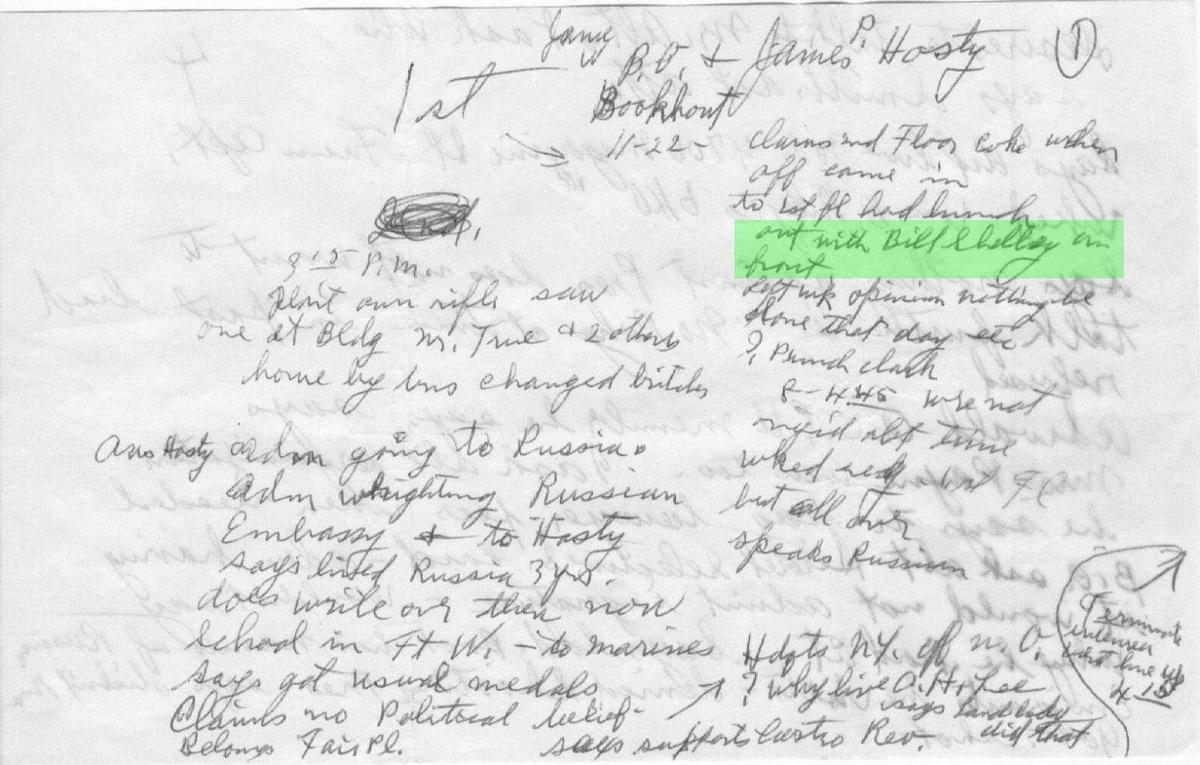 1st
Jamy W
B.O. + James P. Hosty
Bookhout
①
11-22-
3 15 P.M.
dont own rifle saw
one at Bldg Mr. True & 2 others
home by bus changed britches
Ans Hosty adm going to Russia
adm wrighting Russian
Embassy & to Hosty
says lived Russia 3 yrs.
does write over then now
school in Ft W. – to marines
says got usual medals
claims no Political belief
Belongs Fair Pl.
claims 2nd Floor coke when
off came in
to 1st fl had lunch
out with Bill Shelley in
front
left wk opinion nothing be
done that day etc
? Punch clock
8-4 45 wre not
rigid abt time
wked reg 1st Fl
but all over
speaks Russian
Hdqts NY. off N. O.
? why live O. H. Lee
says landlady
did that
says supports Castro Rev.
Terminate
interview
with line up
4 15